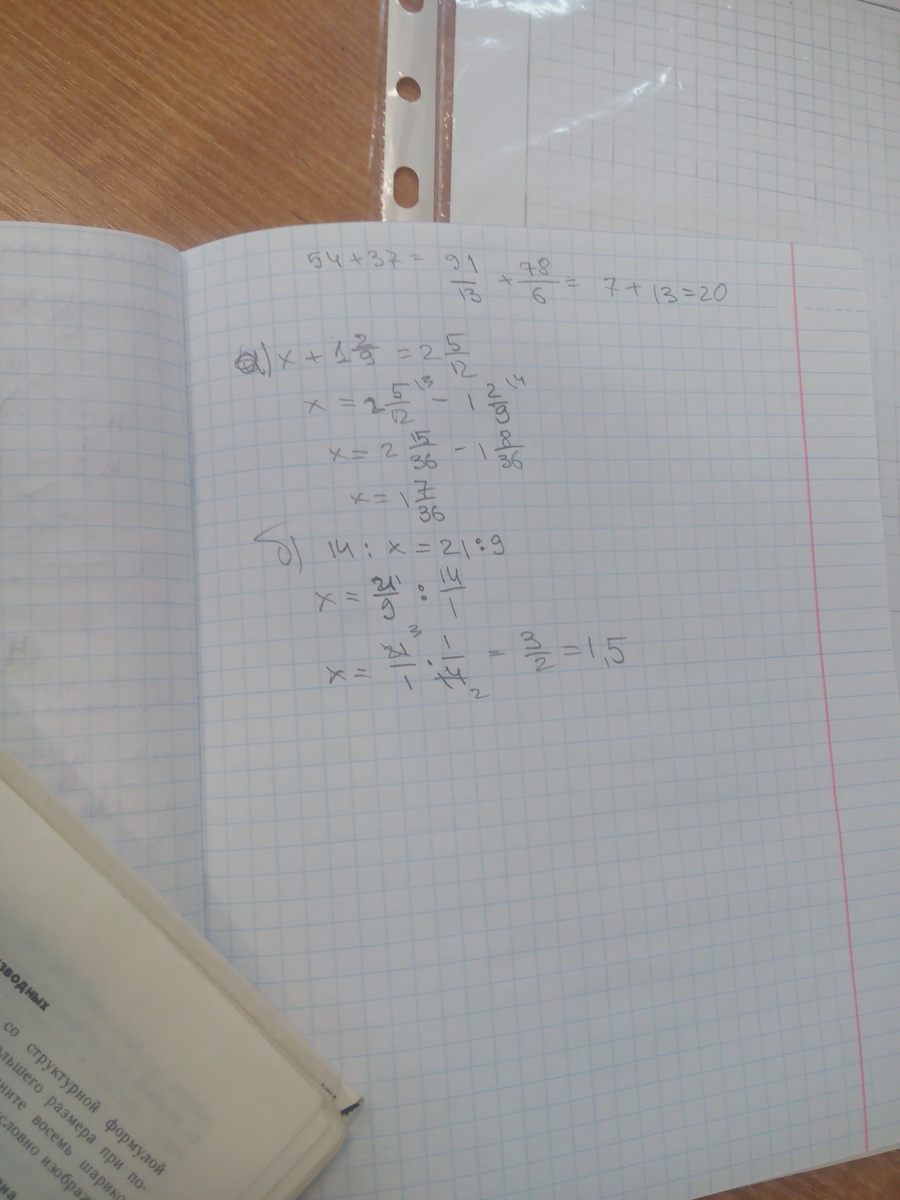 54+37= 91/13 + 78/6 = 7+13=20
а) x + 1 2/9 = 2 5/12
x = 2 5/12 |3 - 1 2/9 |4
x = 2 15/36 - 1 8/36
x = 1 7/36
б) 14 : x = 21 : 9
x = 21/9 : 14/1
x = 21 3/1 · 1/14 2 = 3/2 = 1,5
зводных
со структурной формулой
льшего размера при по-
ните восемь шарико
словно изобраз